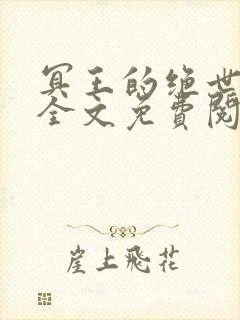 冥王的绝世
全文免費閱
崖上飛花